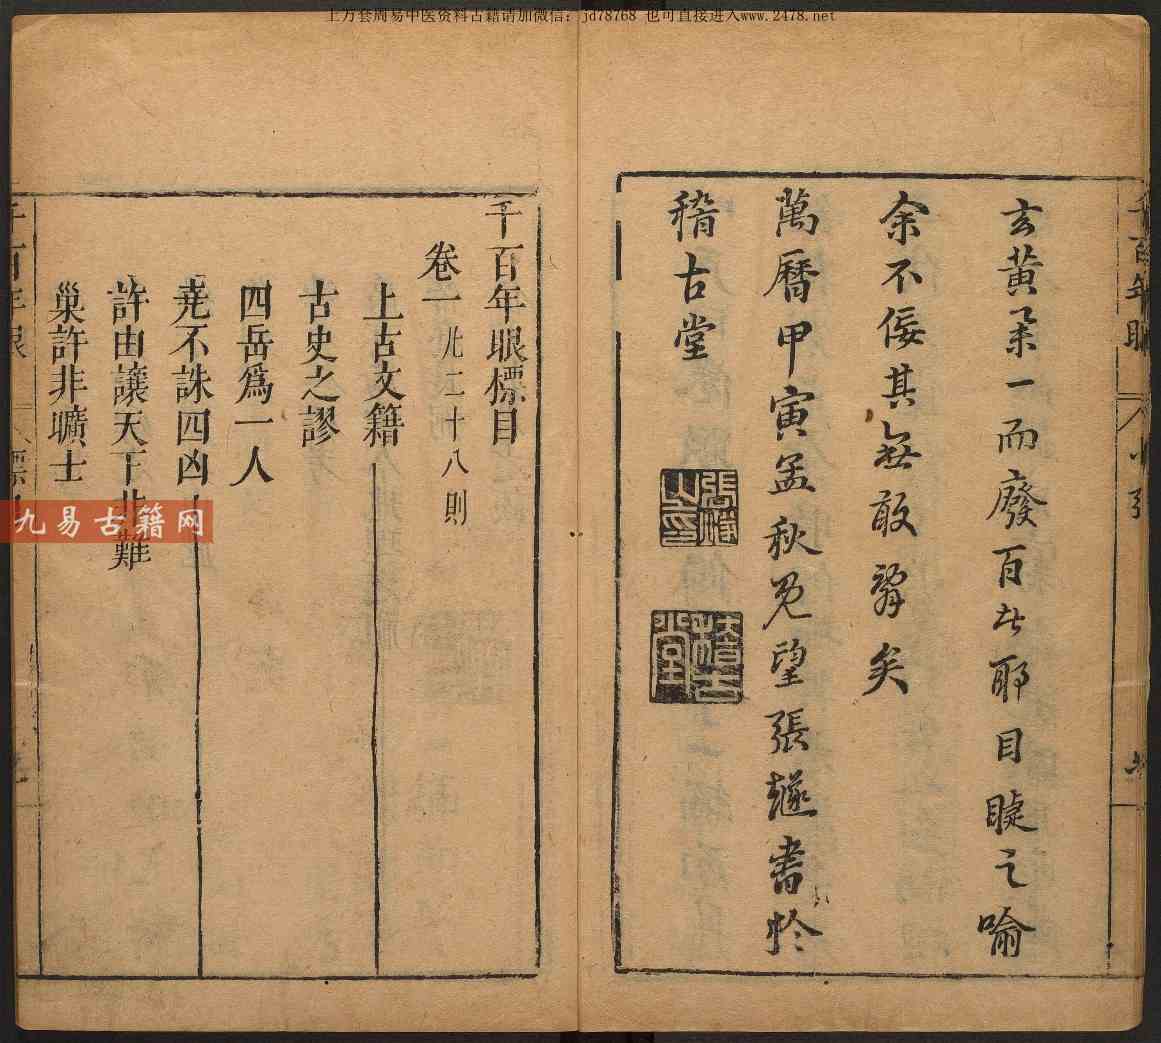 上万套周易中医资料古籍请加微信：jd78768 也可直接进入www.2478.net
玄黄柔一而廢百者耶目睫之喻
余不佞其無敢辭矣
萬曆甲寅孟秋既望張燧書於
稽古堂
張燧
之印
稽古
堂
千百年眼
小引
千百年眼標目
卷一 凡二十八則
上古文籍
古史之謬
四岳爲一人
堯不誅四凶
許由讓天下非難
巢許非曠士
千百年眼
標目
九易古籍网